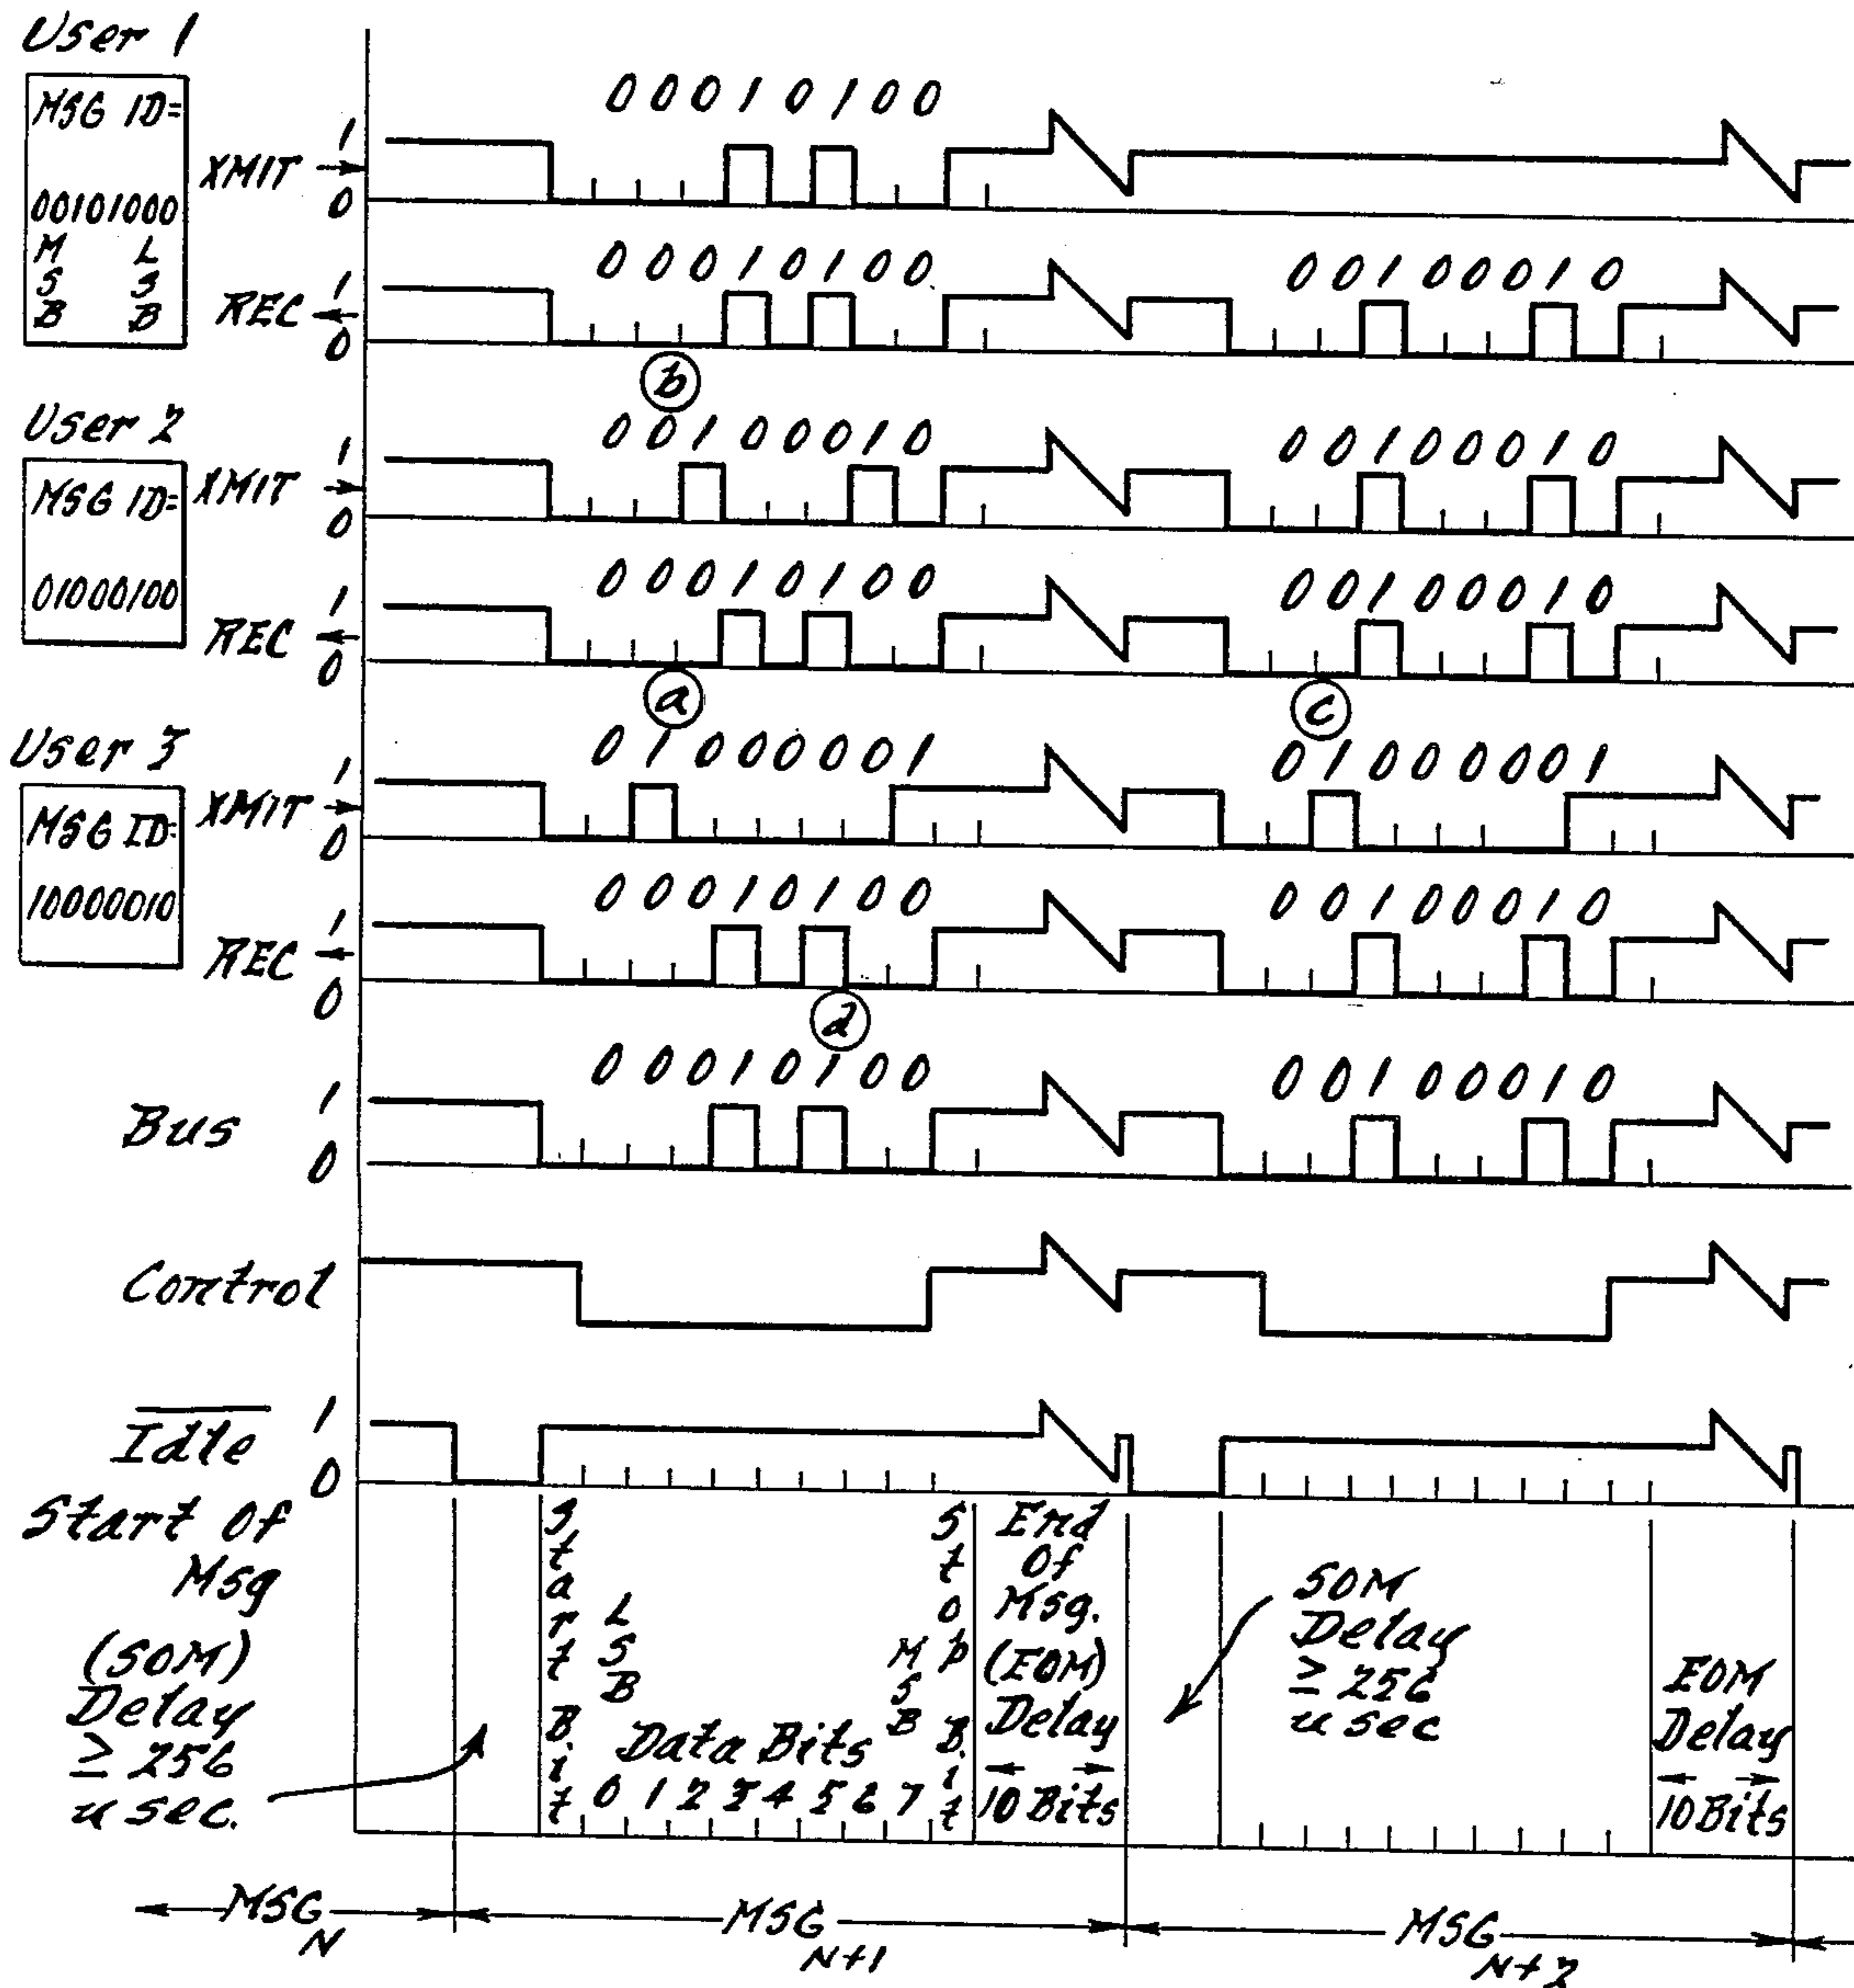 User 1
MSG ID=
00101000
M L
S S
B B
XMIT
1
0
00010100
REC
1
0
00010100
00100010
b
User 2
MSG ID=
01000100
XMIT
1
0
00100010
00100010
REC
1
0
00010100
00100010
a
c
User 3
MSG ID=
10000010
XMIT
1
0
01000001
01000001
REC
1
0
00010100
00100010
d
Bus
1
0
00010100
00100010
Control
Idle
1
0
Start Of
Msg
(SOM)
Delay
≥ 256
u sec.
Start Bit
LSB
Data Bits
0 1 2 3 4 5 6 7
MSB
Stop Bit
End
Of
Msg.
(EOM)
Delay
10 Bits
SOM
Delay
≥ 256
u sec
EOM
Delay
10 Bits
MSG N
MSG N+1
MSG N+2